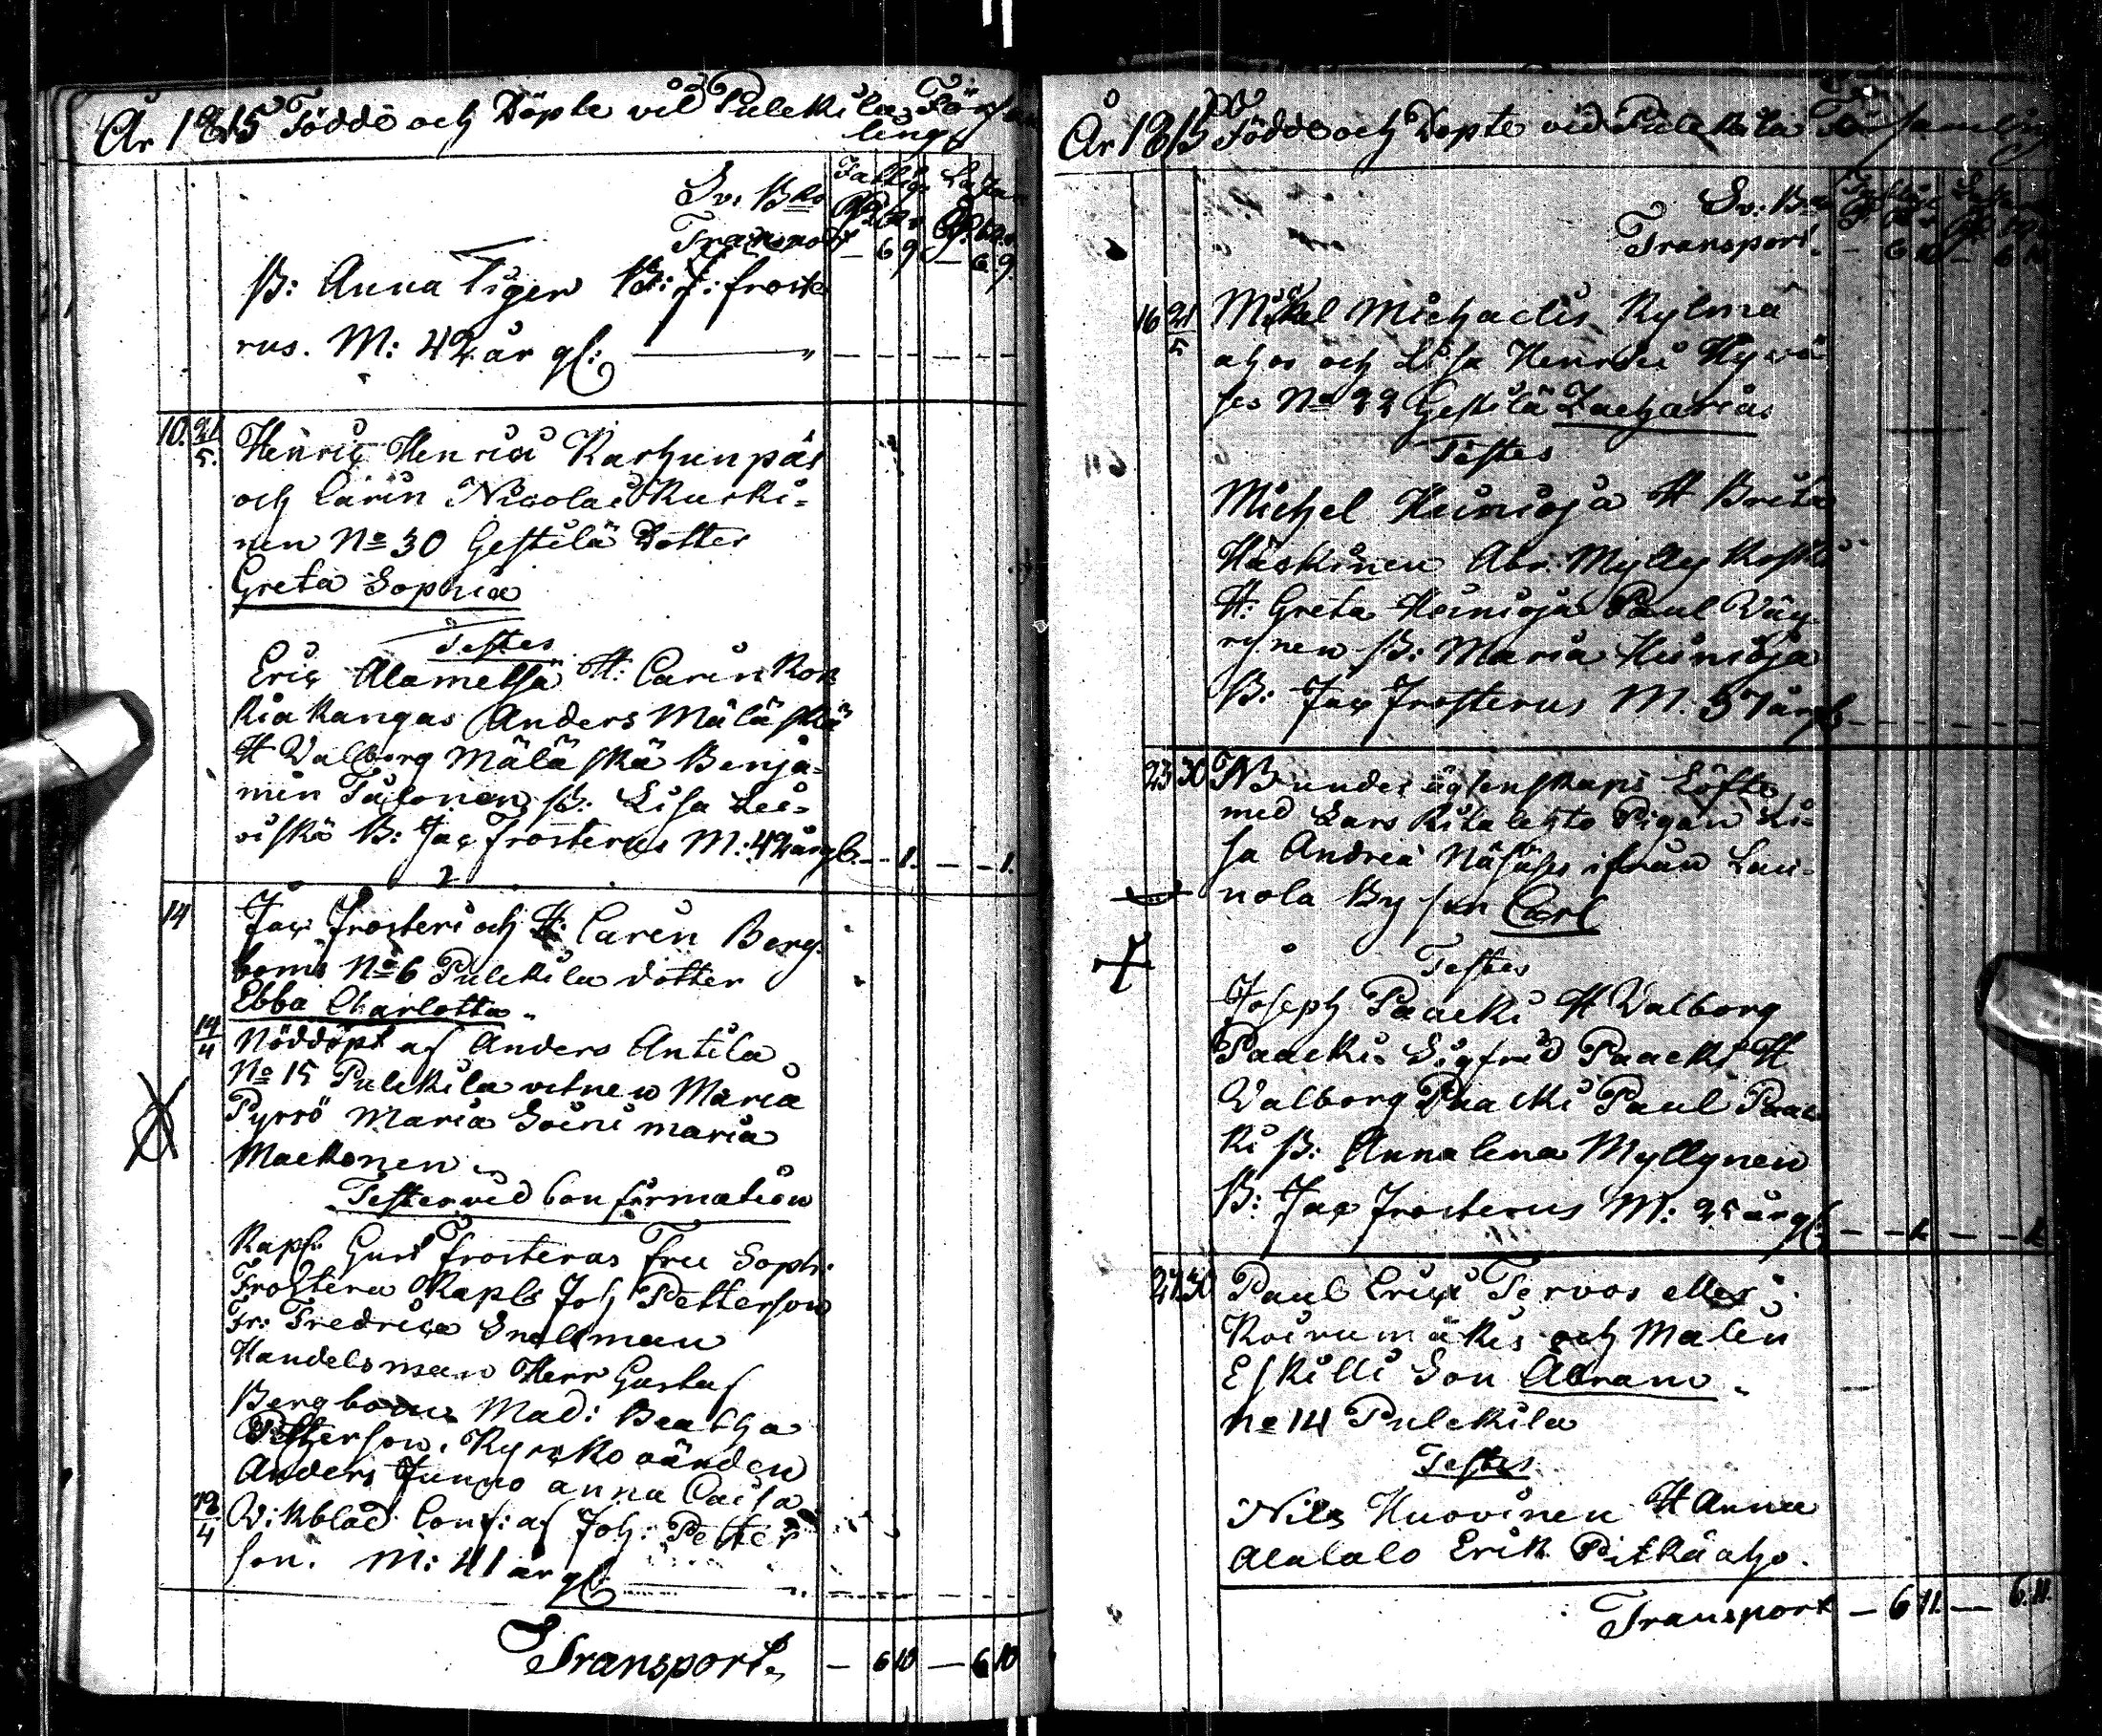 År 1815 Födde och Döpte vid Pulckila Församlings
Sv. Bco
Fattige Lass
Transport — 6 9 — 6 9.
ß: Anna Tiger B: J: froste
rus. M: 42 år gl:
10. 21/5. Henric Henrici Karhunpäs
och Carin Nicolai Kurki=
nen No 30 Gestilä Dotter
Greta Sophia
Testes
Eric Alametsä H: Carin Kor
kiakangas Anders Mäläskä
H Valborg Mäläskä Benja=
min Talonen ß: Lisa Lei=
viskä B: Jac frosterus M: 42 år gl. — 1. — 1.
14 Jac frosteri och H: Caren Berg
boms No 6 Pulckila dotter
Ebba Charlotta
14/4 Nöddöpt af Anders Antila
No 15 Pulckila vitnen Maria
Pyrrö Maria Soini maria
Mackonen
Testes vid Confirmation
Kapl: Gust frosterus Fru Soph:
Frosterus Kapls Joh Petterson
Fr: Fredrica Snellman
Handelsman Herr Gustaf
Bergbom Mad: Beatha
Petterson. Kyrckovärden
Anders Junno anna Caisa
Vikblad Conf: af Joh: Petter
son. M: 41 år gl:
Transport — 6 10 — 6 10
År 1815 Födde och Döpte vid Pulckila Församling
Sv: Bco
Transport. — 6 10 — 6 10
16 21/5 Mickel Michaelis Kylmä
ahos och Lisa Henrici Hyvä
ses No 22 Gestilä Zacharias
Testes
Michel Heinioja H Brita
Häskinen Abr. Myllykoski
H: Greta Heinioja Paul Väy
rynen ß: Maria Heinioja
B: Jac Frosterus M. 37 år gl
23 30 NB under ägtenskaps Löfte
med Lars Ritalehto Pigan Li=
sa Andreä Näsäses ifrån Lau=
nola By son Carl
Testes
Joseph Paacki H Valborg
Paacki Sigfrid Paacki H
Valborg Paacki Paul Paac
ki ß: Annalena Myllynen
B: Jac Frosterus M: 25 år gl: — 1. — 1.
27 30 Paul Erici Tervos eller
Koirumäkis och Malin
Eskilli Son Abram
No 14 Pulckila
Testes
Nils Huovinen H Anna
Alatalo Erik Pitkäaho.
Transport — 6 11. — 6. 11.